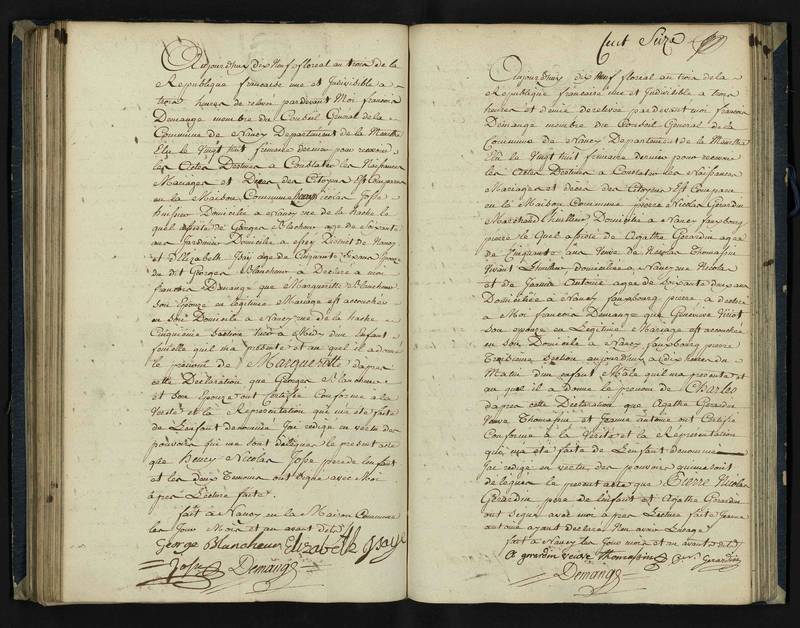 Aujourdhuy dix Neuf floreal an trois de la
Republique francaise une et Indivisible a
trois heures de relevé pardevant Moi francois
Demange membre du Conseil General de la
Commune de Nancy Departement de la Meurthe
Elu le Vingt huit frimaire dernier pour recevoir
les Actes Destinés a Constater les Naissances
Mariages et Deces des Citoyens Est Comparu
en la Maison Commune henry Nicolas Josse
huissier Domicilié a Nancy rue de la hache le
quel assisté de Georges Blancheur age de Soixante
ans Jardinier Domicilié a District de Nancy
et d'Elizabeth agé de Cinquante ans Epouse
du dit Georges Blancheur a Declaré a moi
francois Demange que Margueritte Blancheur
son Epouse en legitime Mariage est accouchée
en son Domicile a Nancy rue de la hache
Cinquieme Section a Midy d'un Enfant
femelle quil ma presenté et au quel il a donné
le prenom de Margueritte dapres
cette Declaration que Georges Blancheur
et son Epouse ont Certifié Conforme a la
Verité et la Representation qui ma eté faite
de L'enfant denommé Jai redigé en vertu des
pouvoirs qui me sont delegués le present acte
que Henry Nicolas Josse pere de lenfant
et les deux Temoins ont Signé avec Moi
apres Lecture faite.
fait a Nancy en la Maison Commune
les Jour Mois et an avant dits
George Blancheur Elizabeth
Josse Demange
Cent Seize
Aujourdhuy dix Neuf floreal an trois de la
Republique francaise une et Indivisible a trois
heures et demie de relevée pardevant moi francois
Demange membre du Conseil General de la
Commune de Nancy Departement de la Meurthe
Elu le Vingt huit frimaire dernier pour recevoir
les Actes Destinés a Constater les Naissances
Mariages et deces des Citoyens Est Comparu
en la Maison Commune pierre Nicolas Gerardin
Marchand Domicilié a Nancy faubourg
pierre le Quel assisté de Agathe Gerardin agée
de Cinquante ans Veuve de Nicolas Thomassin
Vivant domiciliée a Nancy rue Nicolas
et de Jeanne Antoine agée de Soixante deux ans
Domiciliée a Nancy faubourg pierre a declaré
a Moi francois Demange que Genevieve
son epouse en Legitime Mariage est accouchée
en son Domicile a Nancy faubourg pierre
Troisieme Section aujourdhuy a dix heures du
Matin d'un enfant Male quil ma presenté et
au quel il a donné le prenom de Charles
dapres cette Declaration que Agathe Gerardin
Veuve Thomassin et Jeanne antoine ont Certifié
Conforme a la Verité et la Representation
qui ma eté faite de L'enfant denommé
Jai redigé en vertu des pouvoirs qui me sont
delegués le present acte que Pierre Nicolas
Gerardin pere de lenfant et Agathe Gerardin
ont Signé avec moi apres Lecture faite Jeanne
antoine ayant declaré Nen avoir Lusage
fait a Nancy les Jour mois et an avant dits
A gerardin veuve Thomassin Gerardin
Demange